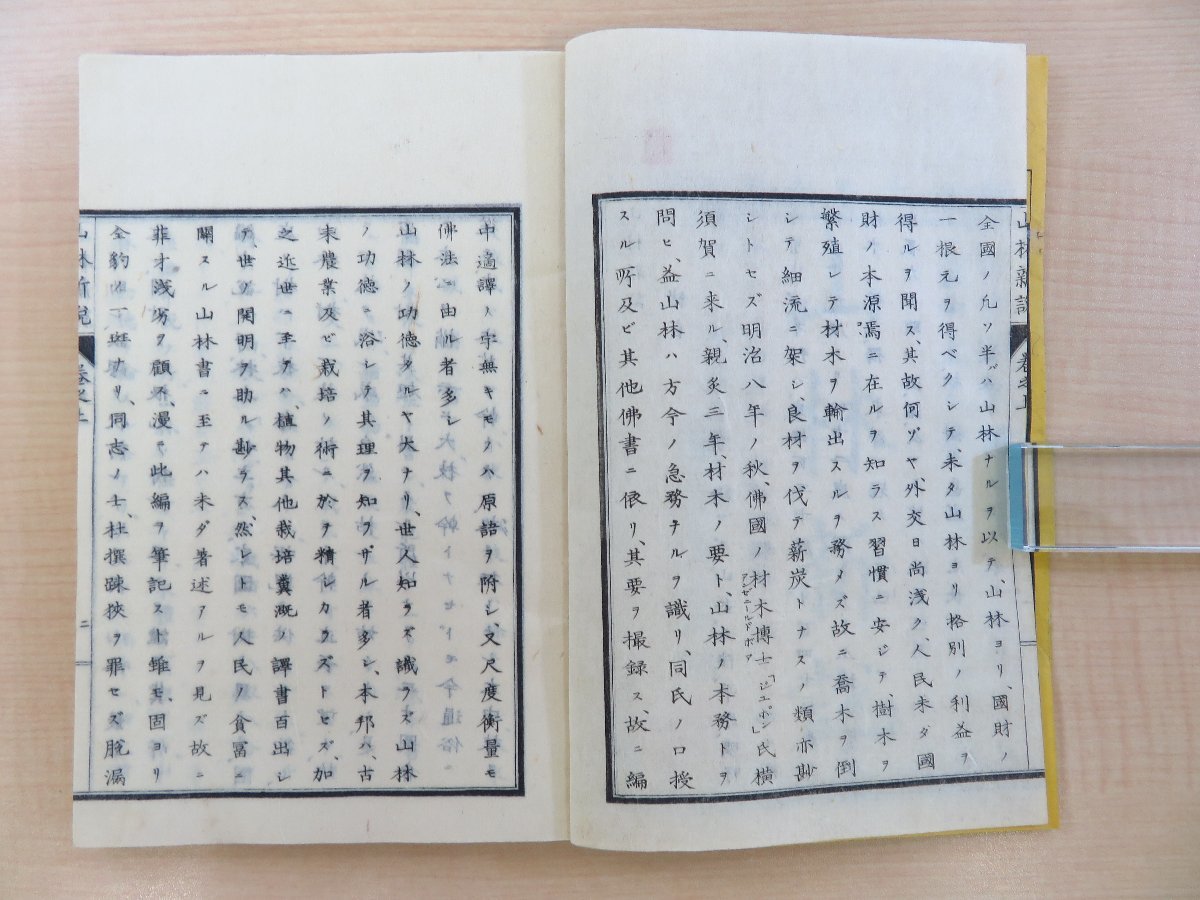 全國ノ凢ソ半バハ山林ナルヲ以テ、山林ヨリ、國財ノ
一根元ヲ得ベクシテ、未タ山林ヨリ格別ノ利益ヲ
得ルヲ聞ス、其故何ゾヤ、外交日尚浅ク、人民未ダ國
財ノ本源焉ニ在ルヲ知ラス習慣ニ安ジテ、樹木ヲ
繁殖シテ材木ヲ輸出スルヲ務メズ故ニ喬木ヲ倒
シテ細流ニ架シ、良材ヲ伐テ薪炭トナスノ類亦尠
シトセズ明治八年ノ秋、佛國ノ材木博士「ジユポン」氏横
アンゼニールドボア
須賀ニ来ル、親炙三年、材木ノ要ト、山林ノ本務トヲ
問ヒ、益山林ハ方今ノ急務ナルヲ識リ、同氏ノ口授
スル所及ビ其他佛書ニ依リ、其要ヲ撮録ス、故ニ編
山林新説 巻之上
中適譯ノ字無キモノハ原語ヲ附シ、又尺度衡量モ
佛法ニ由ル者多シ
山林ノ功德タルヤ大ナリ、世人知ラズ識ラズ山林
ノ功德ニ浴シテ其理ヲ知ラザル者多シ、本邦ハ、古
来農業及ビ栽培ノ術ニ於テ精シカラズトセズ、加
之近世ニ至テハ、植物其他栽培糞漑ノ譯書百出シ
テ、世ノ開明ヲ助ル尠ラス、然レトモ人民ノ貧冨ニ
關スル山林書ニ至テハ未ダ著述アルヲ見ズ故ニ
菲才浅劣ヲ顧ス、漫ニ此編ヲ筆記スト雖モ、固ヨリ
全豹ノ一斑ナリ、同志ノ士、杜撰踈狹ヲ罪セズ脱漏
山林新説 巻之上 二